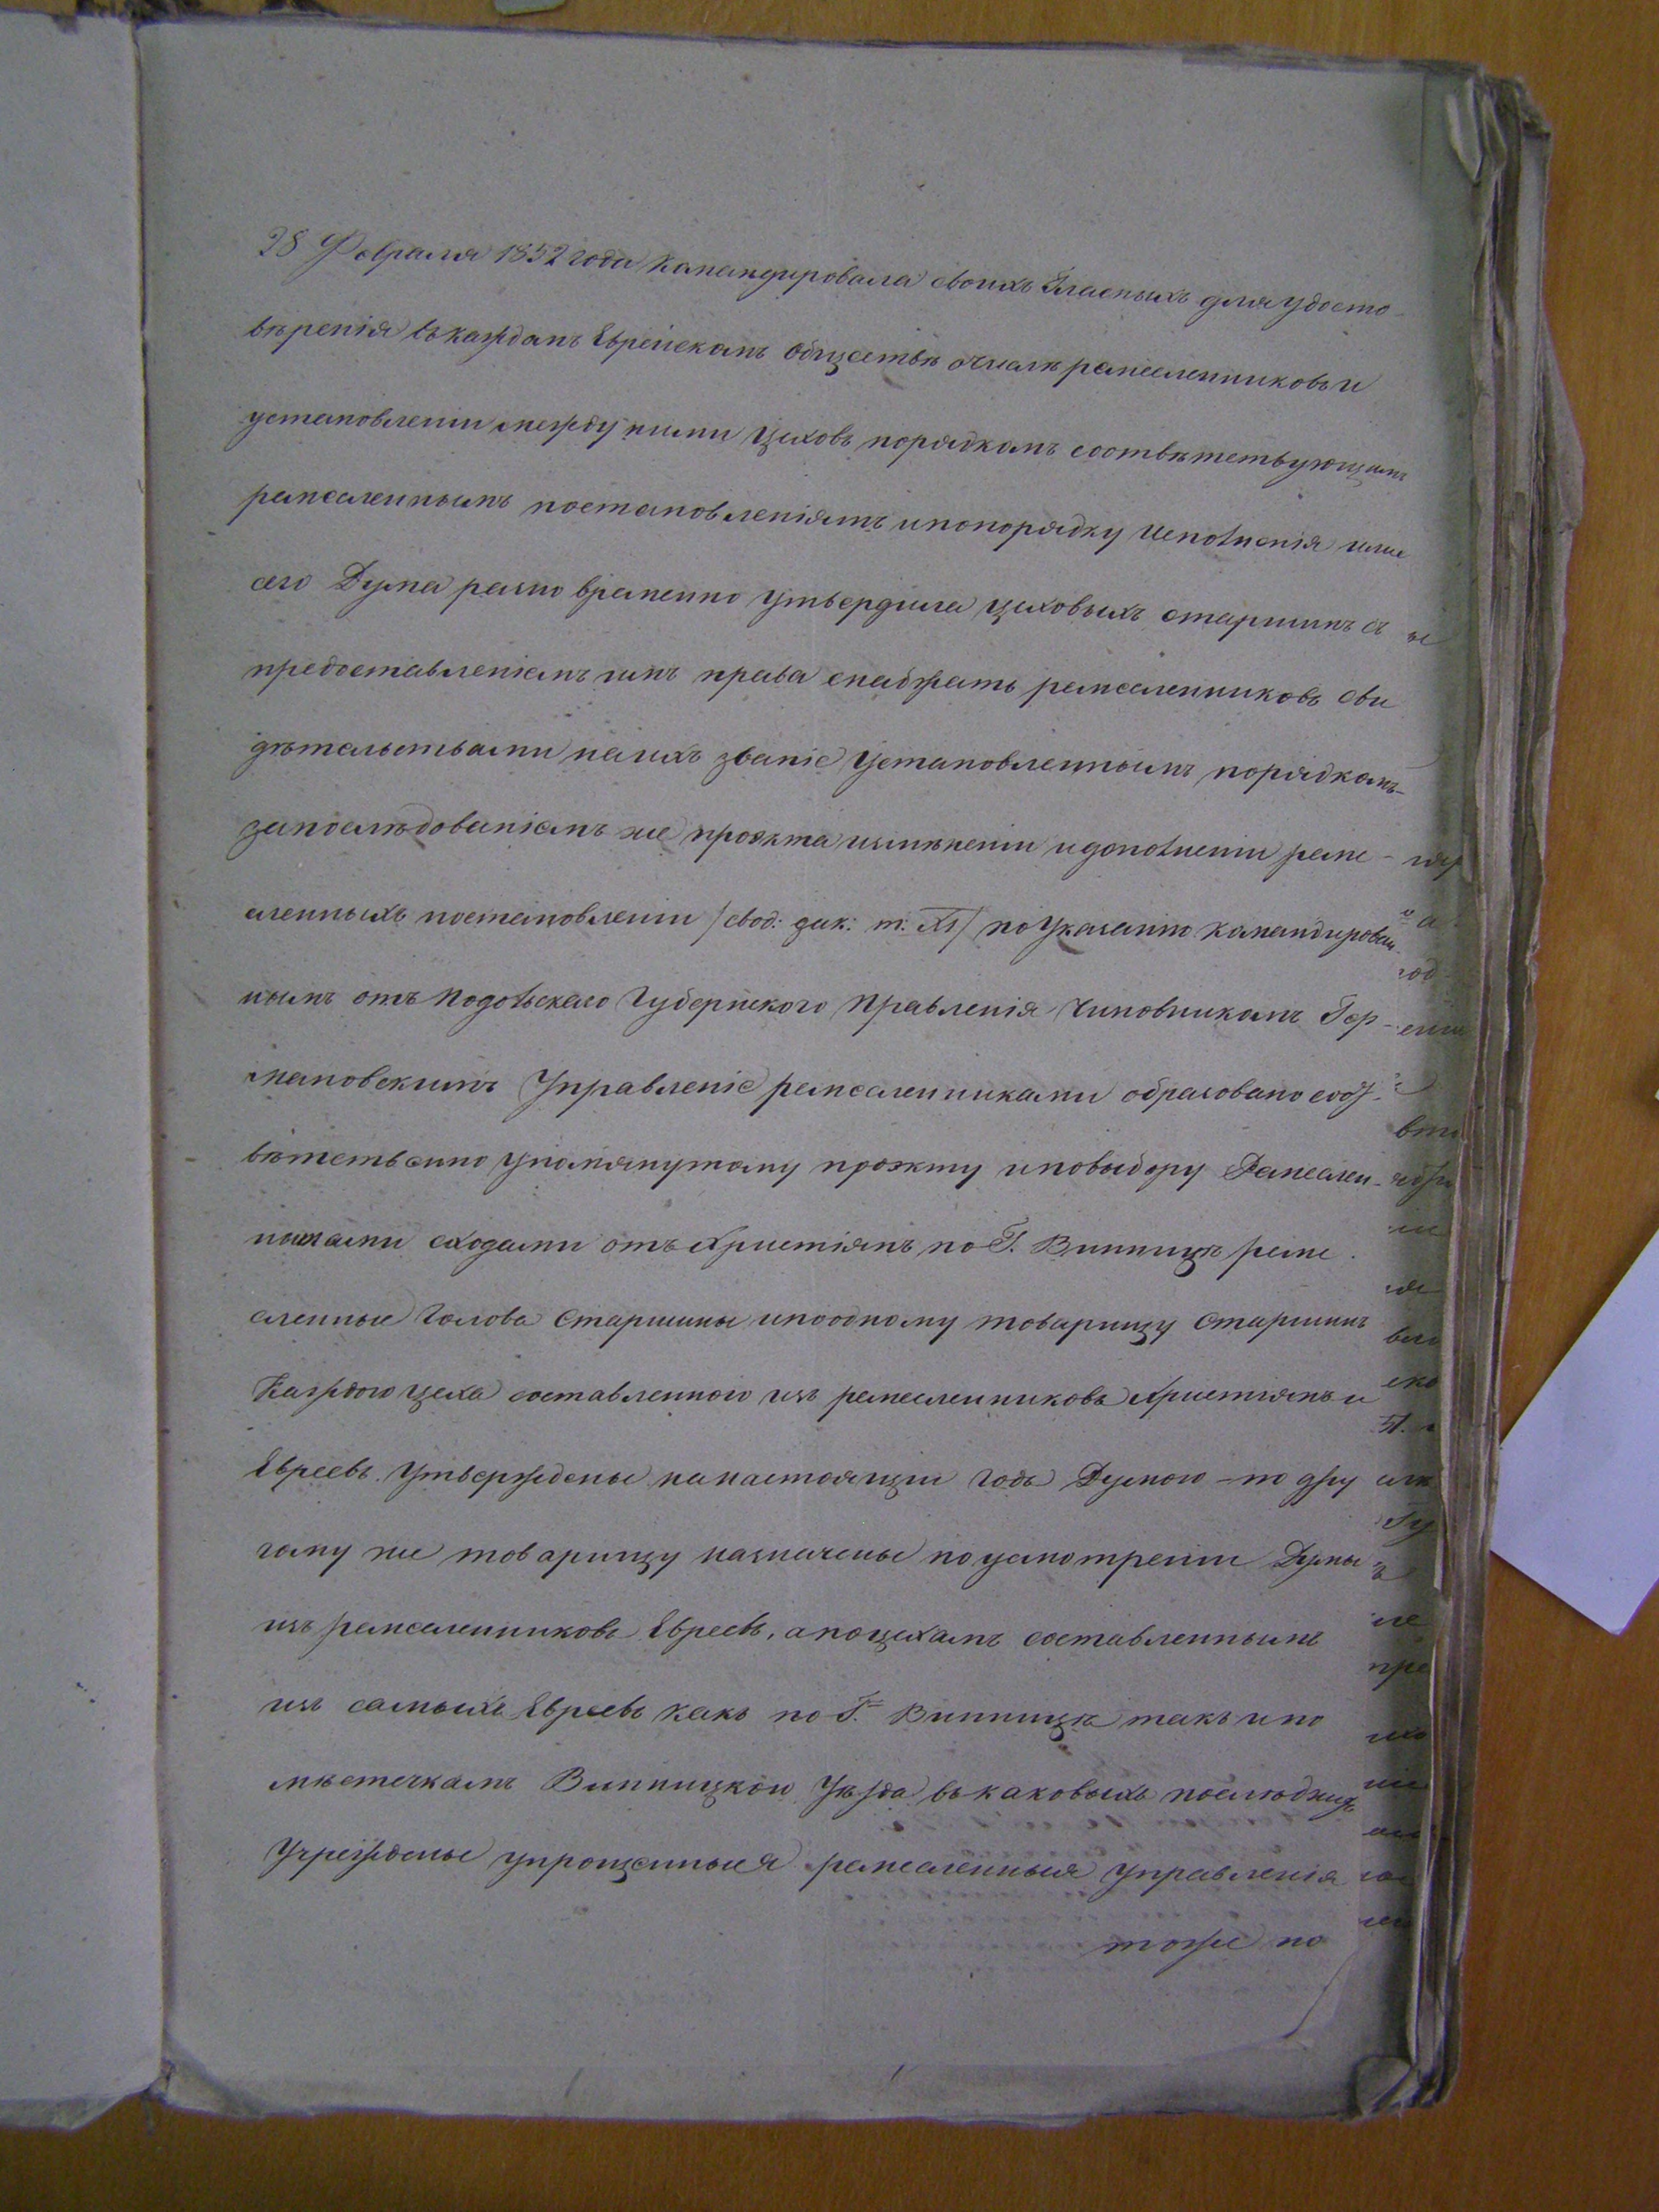 28 Февраля 1852 года командировала своихъ Гласныхъ для удосто-
вѣренія въ каждомъ Еврейскомъ обществѣ о числѣ ремесленниковъ и
установленіи между ними цеховъ порядкомъ соотвѣтствующимъ
ремесленнымъ постановленіямъ и по порядку исполненія
сего Дума разно временно утвердила цеховыхъ старшинъ съ
предоставленіемъ имъ права снабжать ремесленниковъ сви
дѣтельствами на ихъ званіе установленнымъ порядкомъ-
запослѣдованіемъ же проэкта измѣненіи и дополненіи реме-
сленныхъ постановленіи /свод: зак: т: XI/ по указанію командирован-
нымъ отъ Подольскаго Губернскаго Правленія Чиновникомъ Гер-
мановскимъ Управленіе ремесленниками образовано соот-
вѣтственно упомянутому проэкту и по выбору Ремеслен-
ными сходами отъ Христіянъ по Г. Винницѣ реме
сленные Голова Старшины и по одному товарищу Старшинъ
Каждого цеха составленного изъ ремесленниковъ Христіянъ и
Евреевъ. Утверждены на настоящіи годъ Думою – по дру
гому же товарищу назначены по усмотреніи Думы
изъ ремесленниковъ Евреевъ, а по цехамъ составленнымъ
изъ самыхъ Евреевъ какъ по Г. Винницѣ такъ и по
мѣстечкамъ Винницкого Уѣзда въ каковыхъ послѣднихъ
Учреждены упрощенныея ремесленныя управленія
тоже по